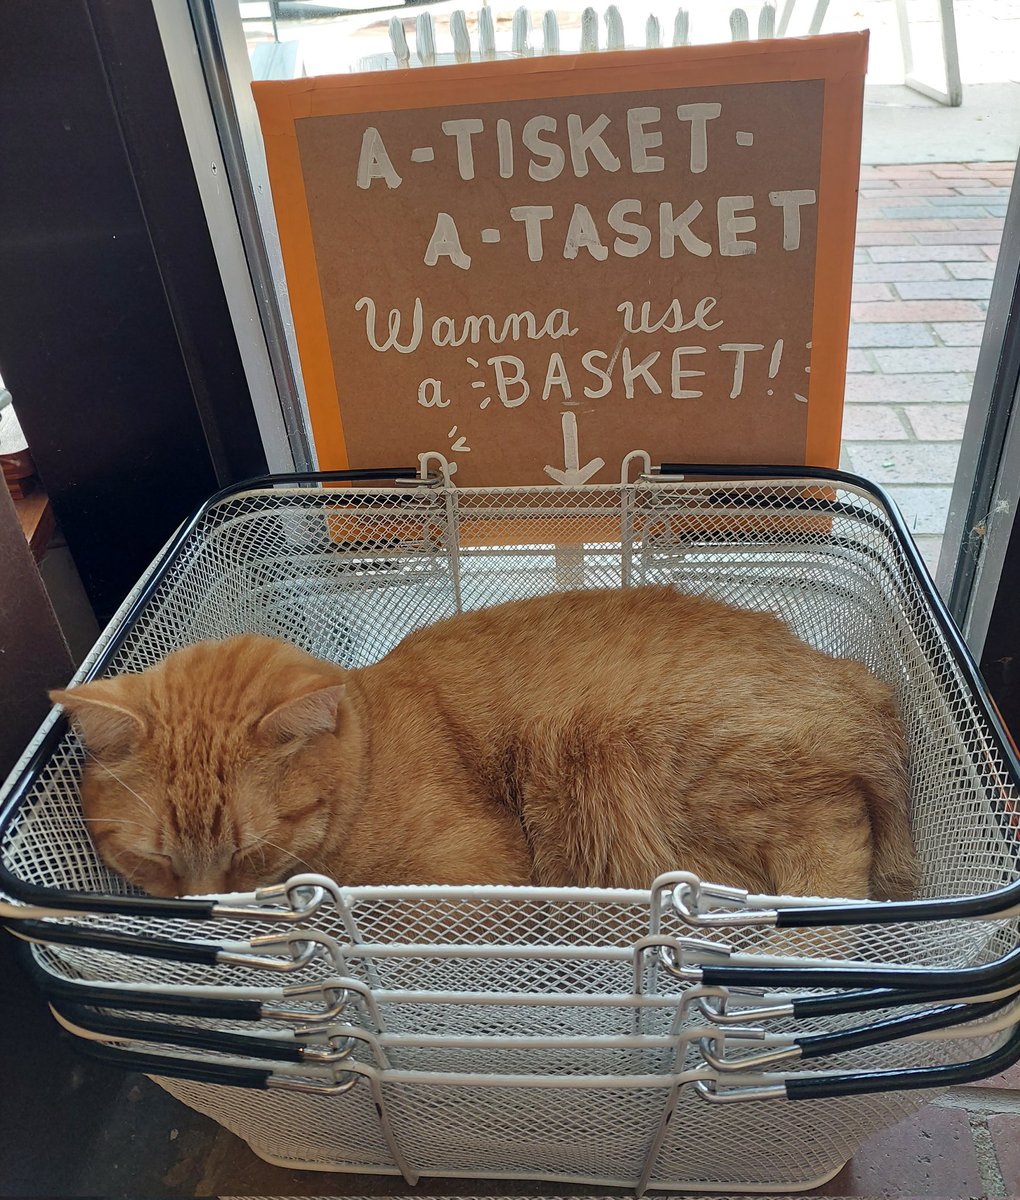 A-TISKET-
A-TASKET
Wanna use
a BASKET!